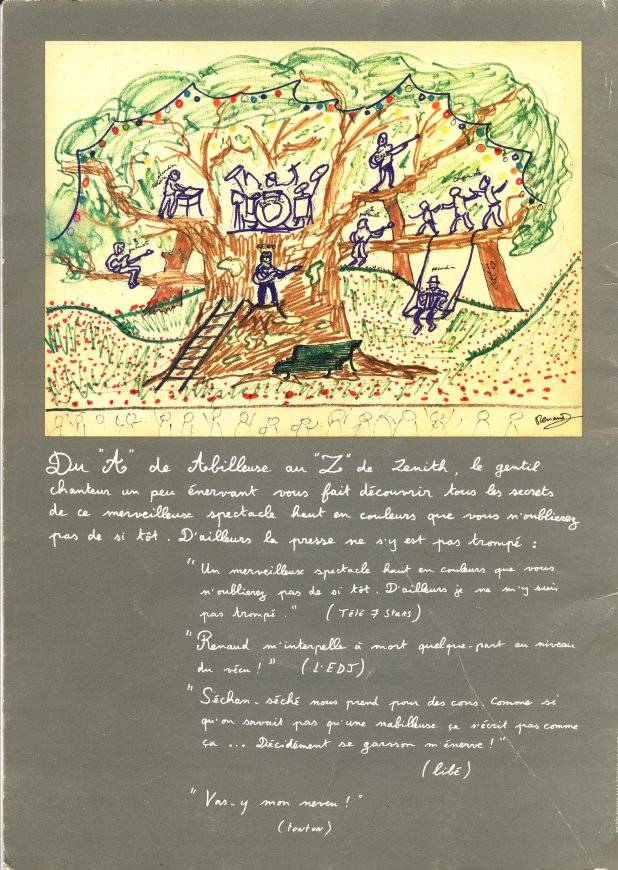 Renaud
Du "A" de Abilleuse au "Z" de Zenith, le gentil
chanteur un peu énervant vous fait découvrir tous les secrets
de ce merveilleux spectacle haut en couleurs que vous n'oublierez
pas de si tôt. D'ailleurs la presse ne s'y est pas trompé :
"Un merveilleux spectacle haut en couleurs que vous
n'oublierez pas de si tôt. D'ailleurs je ne m'y suis
pas trompé." (Télé 7 Stars)
"Renaud m'interpelle à mort quelque-part au niveau
du vécu !" (L'EDJ)
"Séchan-séché nous prend pour des cons. Comme si
qu'on savait pas qu'une nabilleuse ça s'écrit pas comme
ça ... Décidément se garsson m'énerve !"
(libé)
"Vas-y mon neveu !"
(tonton)